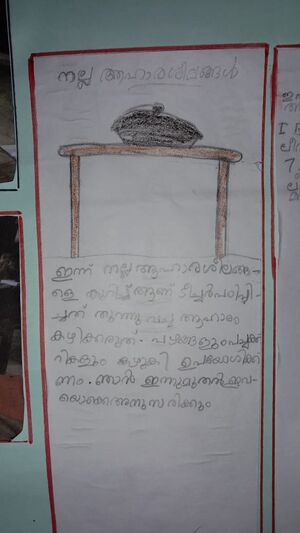 നല്ല ആഹാരശീലങ്ങൾ
ഇന്ന് നല്ല ആഹാരശീലങ്ങ-
ളെ കുറിച്ച് ആണ് ടീച്ചർ പഠിപ്പി-
ച്ചത് തുറന്നു വച്ച ആഹാരം
കഴിക്കരുത്. പഴങ്ങളും പച്ചക്ക
റികളും കഴുകി ഉപയോഗിക്ക
ണം. ഞാൻ ഇന്നുമുതൽ ഇവ-
യൊക്കെ അനുസരിക്കും